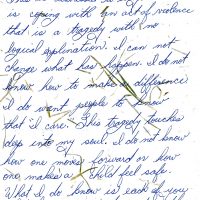 is coping with an act of violence
that is a tragedy with no
logical explanation. I can not
change what has happen. I do not
know how to make a difference.
I do want people to know
that I care. This tragedy touches
deep into my soul. I do not know
how one moves forward or how
one makes a child feel safe.
What I do know is each of you